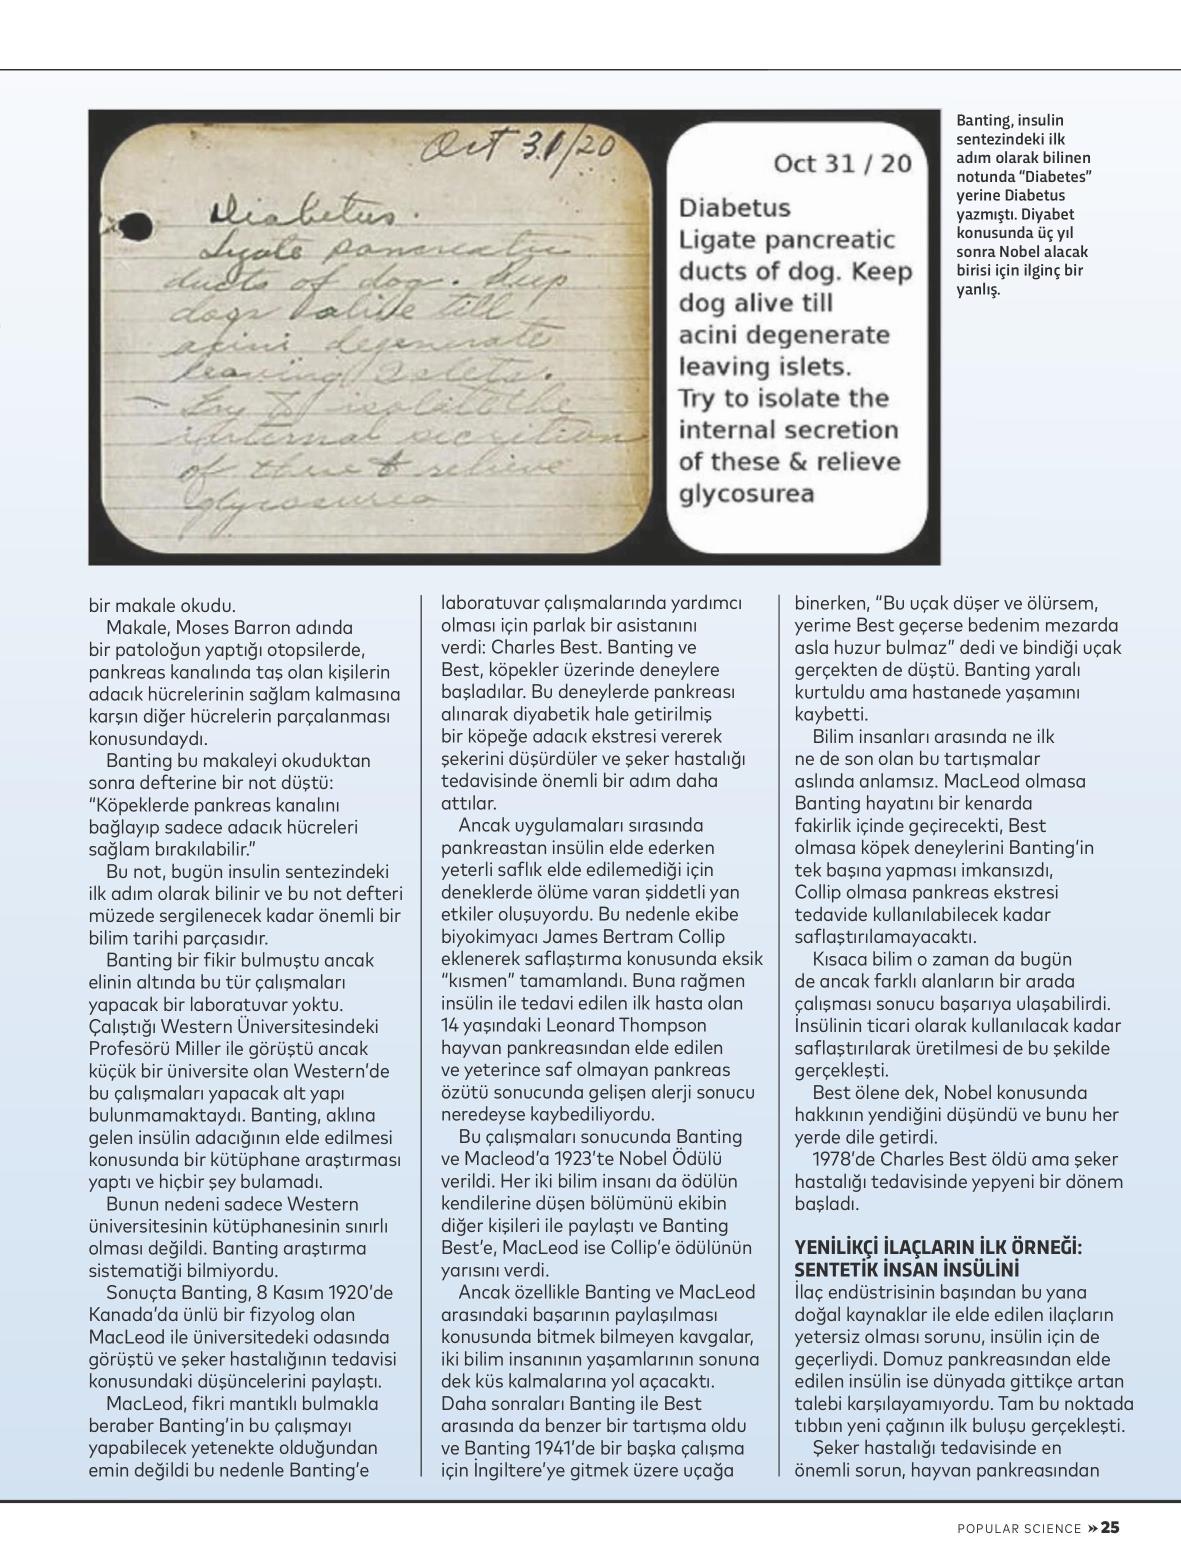 Oct 31/20
Diabetus.
Ligate pancreatic
ducts of dog. Keep
dogs alive till
acini degenerate
leaving Islets.
Try to isolate the
internal secretion
of these & relieve
glycosurea
Oct 31 / 20
Diabetus
Ligate pancreatic
ducts of dog. Keep
dog alive till
acini degenerate
leaving islets.
Try to isolate the
internal secretion
of these & relieve
glycosurea
Banting, insulin
sentezindeki ilk
adım olarak bilinen
notunda “Diabetes”
yerine Diabetus
yazmıştı. Diyabet
konusunda üç yıl
sonra Nobel alacak
birisi için ilginç bir
yanlış.
bir makale okudu.
Makale, Moses Barron adında
bir patoloğun yaptığı otopsilerde,
pankreas kanalında taş olan kişilerin
adacık hücrelerinin sağlam kalmasına
karşın diğer hücrelerin parçalanması
konusundaydı.
Banting bu makaleyi okuduktan
sonra defterine bir not düştü:
“Köpeklerde pankreas kanalını
bağlayıp sadece adacık hücreleri
sağlam bırakılabilir.”
Bu not, bugün insulin sentezindeki
ilk adım olarak bilinir ve bu not defteri
müzede sergilenecek kadar önemli bir
bilim tarihi parçasıdır.
Banting bir fikir bulmuştu ancak
elinin altında bu tür çalışmaları
yapacak bir laboratuvar yoktu.
Çalıştığı Western Üniversitesindeki
Profesörü Miller ile görüştü ancak
küçük bir üniversite olan Western’de
bu çalışmaları yapacak alt yapı
bulunmamaktaydı. Banting, aklına
gelen insülin adacığının elde edilmesi
konusunda bir kütüphane araştırması
yaptı ve hiçbir şey bulamadı.
Bunun nedeni sadece Western
üniversitesinin kütüphanesinin sınırlı
olması değildi. Banting araştırma
sistematiği bilmiyordu.
Sonuçta Banting, 8 Kasım 1920’de
Kanada’da ünlü bir fizyolog olan
MacLeod ile üniversitedeki odasında
görüştü ve şeker hastalığının tedavisi
konusundaki düşüncelerini paylaştı.
MacLeod, fikri mantıklı bulmakla
beraber Banting’in bu çalışmayı
yapabilecek yetenekte olduğundan
emin değildi bu nedenle Banting’e
laboratuvar çalışmalarında yardımcı
olması için parlak bir asistanını
verdi: Charles Best. Banting ve
Best, köpekler üzerinde deneylere
başladılar. Bu deneylerde pankreası
alınarak diyabetik hale getirilmiş
bir köpeğe adacık ekstresi vererek
şekerini düşürdüler ve şeker hastalığı
tedavisinde önemli bir adım daha
attılar.
Ancak uygulamaları sırasında
pankreastan insülin elde ederken
yeterli saflık elde edilemediği için
deneklerde ölüme varan şiddetli yan
etkiler oluşuyordu. Bu nedenle ekibe
biyokimyacı James Bertram Collip
eklenerek saflaştırma konusunda eksik
“kısmen” tamamlandı. Buna rağmen
insülin ile tedavi edilen ilk hasta olan
14 yaşındaki Leonard Thompson
hayvan pankreasından elde edilen
ve yeterince saf olmayan pankreas
özütü sonucunda gelişen alerji sonucu
neredeyse kaybediliyordu.
Bu çalışmaları sonucunda Banting
ve Macleod’a 1923’te Nobel Ödülü
verildi. Her iki bilim insanı da ödülün
kendilerine düşen bölümünü ekibin
diğer kişileri ile paylaştı ve Banting
Best’e, MacLeod ise Collip’e ödülünün
yarısını verdi.
Ancak özellikle Banting ve MacLeod
arasındaki başarının paylaşılması
konusunda bitmek bilmeyen kavgalar,
iki bilim insanının yaşamlarının sonuna
dek küs kalmalarına yol açacaktı.
Daha sonraları Banting ile Best
arasında da benzer bir tartışma oldu
ve Banting 1941’de bir başka çalışma
için İngiltere’ye gitmek üzere uçağa
binerken, “Bu uçak düşer ve ölürsem,
yerime Best geçerse bedenim mezarda
asla huzur bulmaz” dedi ve bindiği uçak
gerçekten de düştü. Banting yaralı
kurtuldu ama hastanede yaşamını
kaybetti.
Bilim insanları arasında ne ilk
ne de son olan bu tartışmalar
aslında anlamsız. MacLeod olmasa
Banting hayatını bir kenarda
fakirlik içinde geçirecekti, Best
olmasa köpek deneylerini Banting’in
tek başına yapması imkansızdı,
Collip olmasa pankreas ekstresi
tedavide kullanılabilecek kadar
saflaştırılamayacaktı.
Kısaca bilim o zaman da bugün
de ancak farklı alanların bir arada
çalışması sonucu başarıya ulaşabilirdi.
İnsülinin ticari olarak kullanılacak kadar
saflaştırılarak üretilmesi de bu şekilde
gerçekleşti.
Best ölene dek, Nobel konusunda
hakkının yendiğini düşündü ve bunu her
yerde dile getirdi.
1978’de Charles Best öldü ama şeker
hastalığı tedavisinde yepyeni bir dönem
başladı.
YENİLİKÇİ İLAÇLARIN İLK ÖRNEĞİ:
SENTETİK İNSAN İNSÜLİNİ
İlaç endüstrisinin başından bu yana
doğal kaynaklar ile elde edilen ilaçların
yetersiz olması sorunu, insülin için de
geçerliydi. Domuz pankreasından elde
edilen insülin ise dünyada gittikçe artan
talebi karşılayamıyordu. Tam bu noktada
tıbbın yeni çağının ilk buluşu gerçekleşti.
Şeker hastalığı tedavisinde en
önemli sorun, hayvan pankreasından
POPULAR SCIENCE » 25